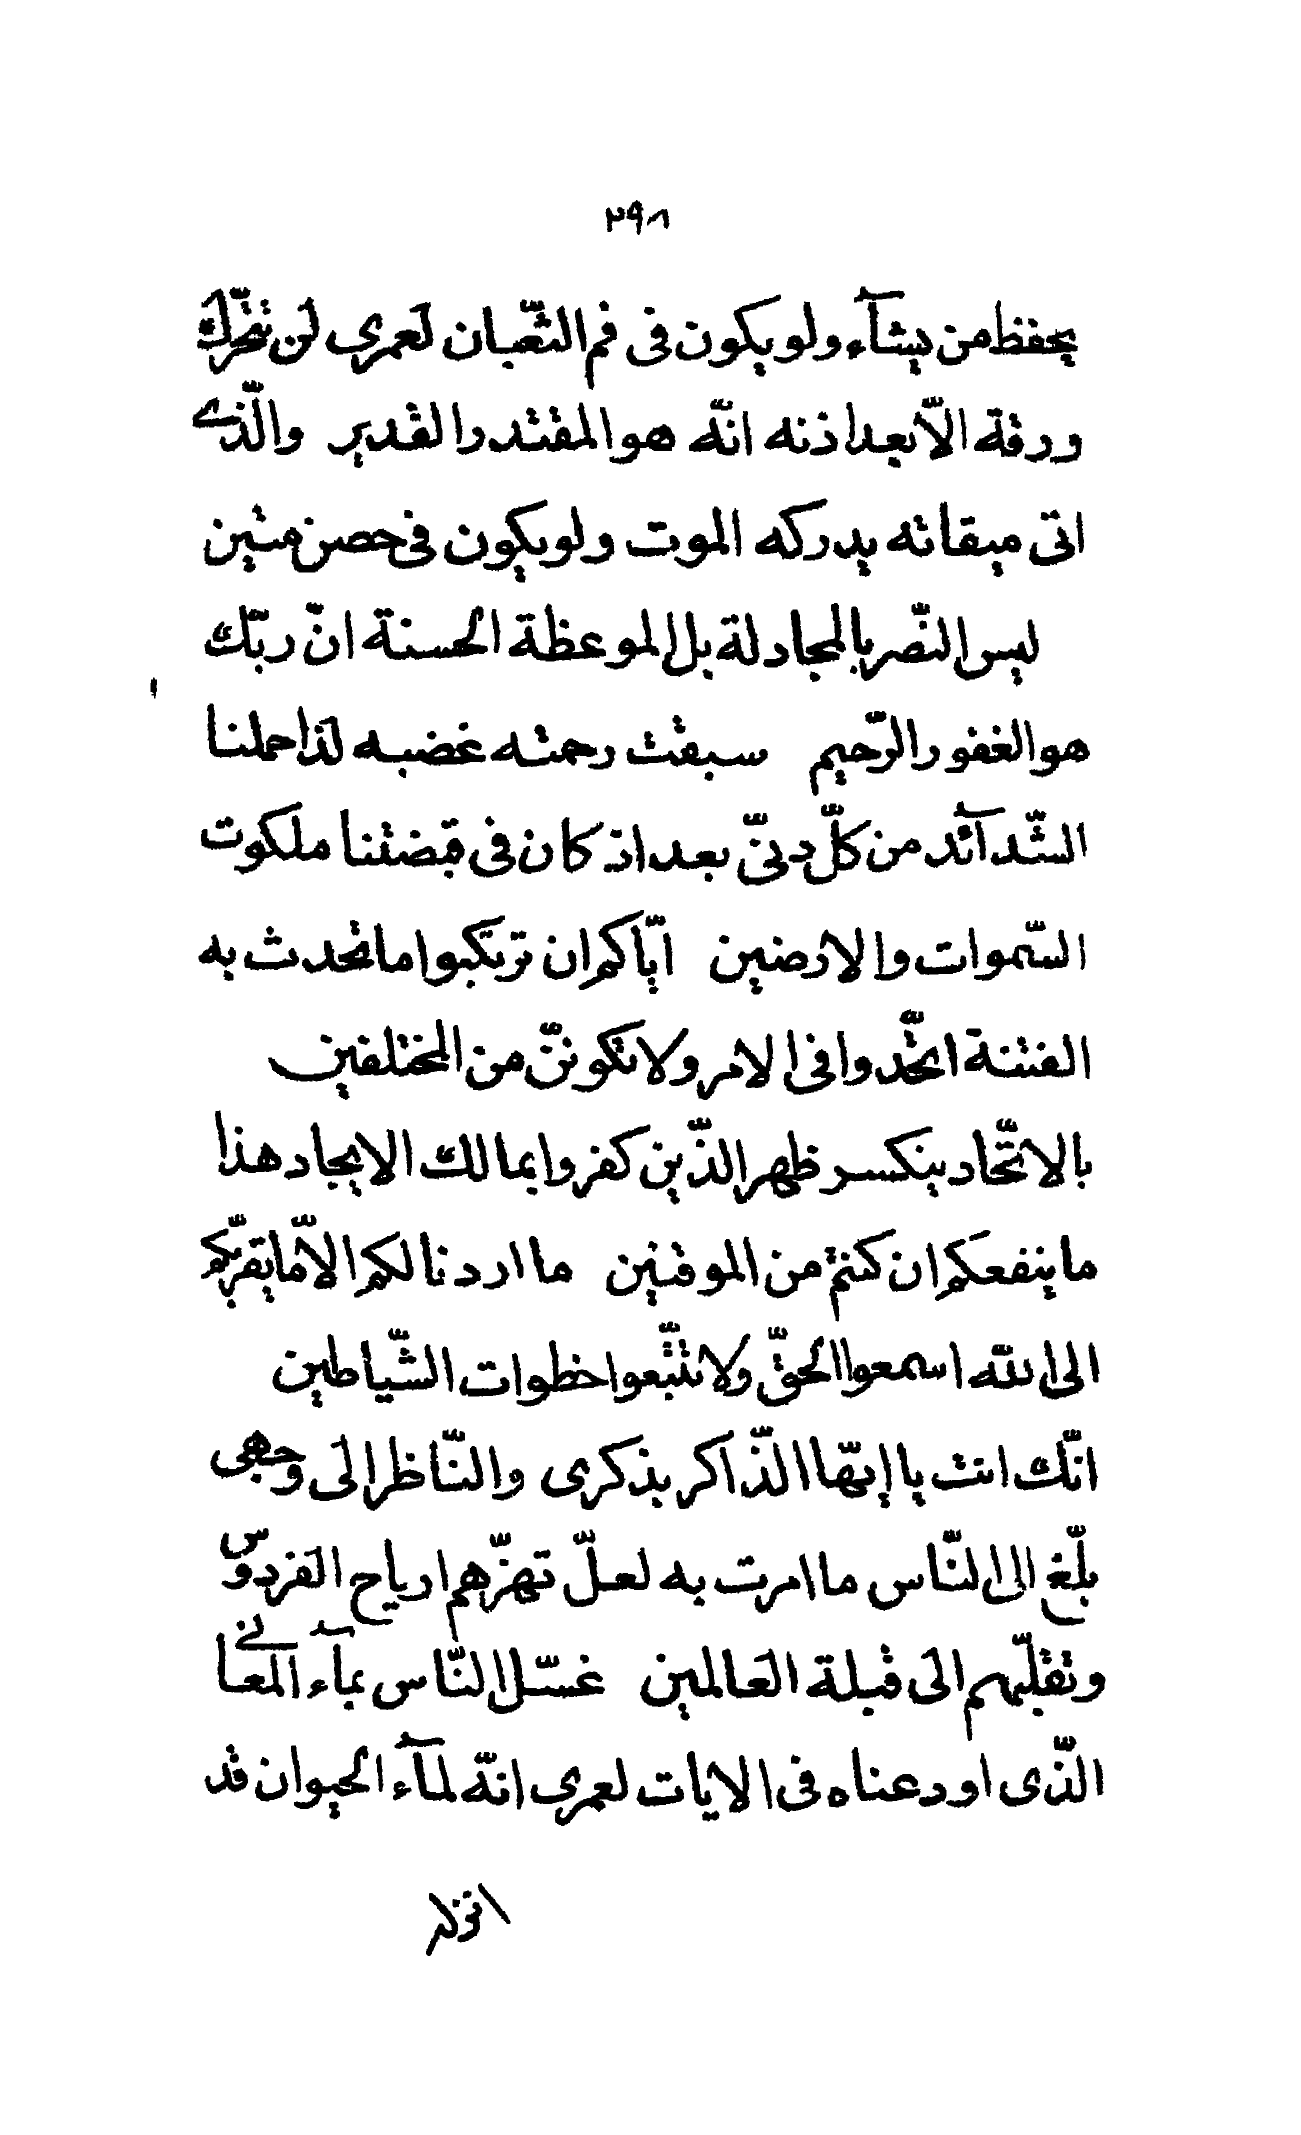 ٢٩٨
يحفظ من يشآء ولو يكون فى فم الثّعبان لعمرى لن تتحّرك
ورقة الاّ بعد اذنه انّه هو المقتدر القدير والّذى
اتى ميقاته يدركه الموت ولو يكون فى حصن متين
ليس النّصر بالمجادلة بل بالموعظة الحسنة انّ ربّك
هو الغفور الرّحيم سبقت رحمته غضبه لذا حملنا
الشّدآئد من كلّ دنىّ بعد اذ كان فى قبضتنا ملكوت
السّموات والارضين ايّاكم ان ترتكبوا ما تحدث به
الفتنة اتّحدوا فى الامر ولا تكوننّ من المختلفين
بالاتّحاد ينكسر ظهر الذّين كفروا بمالك الايجاد هذا
ما ينفعكم ان كنتم من الموقنين ما اردنا لكم الاّ ما يقرّبكم
الى الله اسمعوا الحقّ ولا تتّبعوا خطوات الشّياطين
انّك انت يا إيّها الذّاكر بذكرى والنّاظر الى وجهى
بلّغ الى النّاس ما امرت به لعلّ تهزّهم ارياح الفردوس
وتقلّبهم الى قبلة العالمين غسّل النّاس بمآء المعانى
الذّى اودعناه فى الايات لعمرى انّه لمآء الحيوان قد